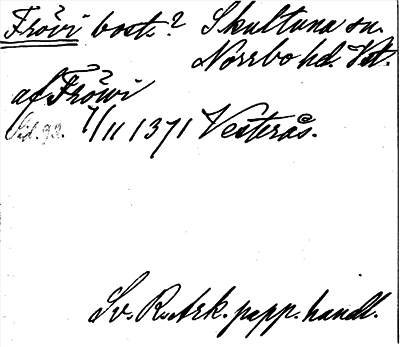 Frövi bost.? Skultuna sn.
Norrbo hd. Vst.
af Fröwi
7/11 1371 Vesterås.
Sv. R. Ark. papp. handl.